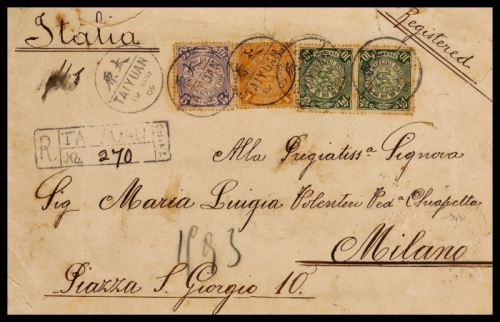 Italia
Registered
太原
TAIYUAN
R
No. 270
Alla Pregiatissª Signora
Sig Maria Luigia Volenteri Vedª Chiapetta
Milano
1983
Piazza S. Giorgio 10.